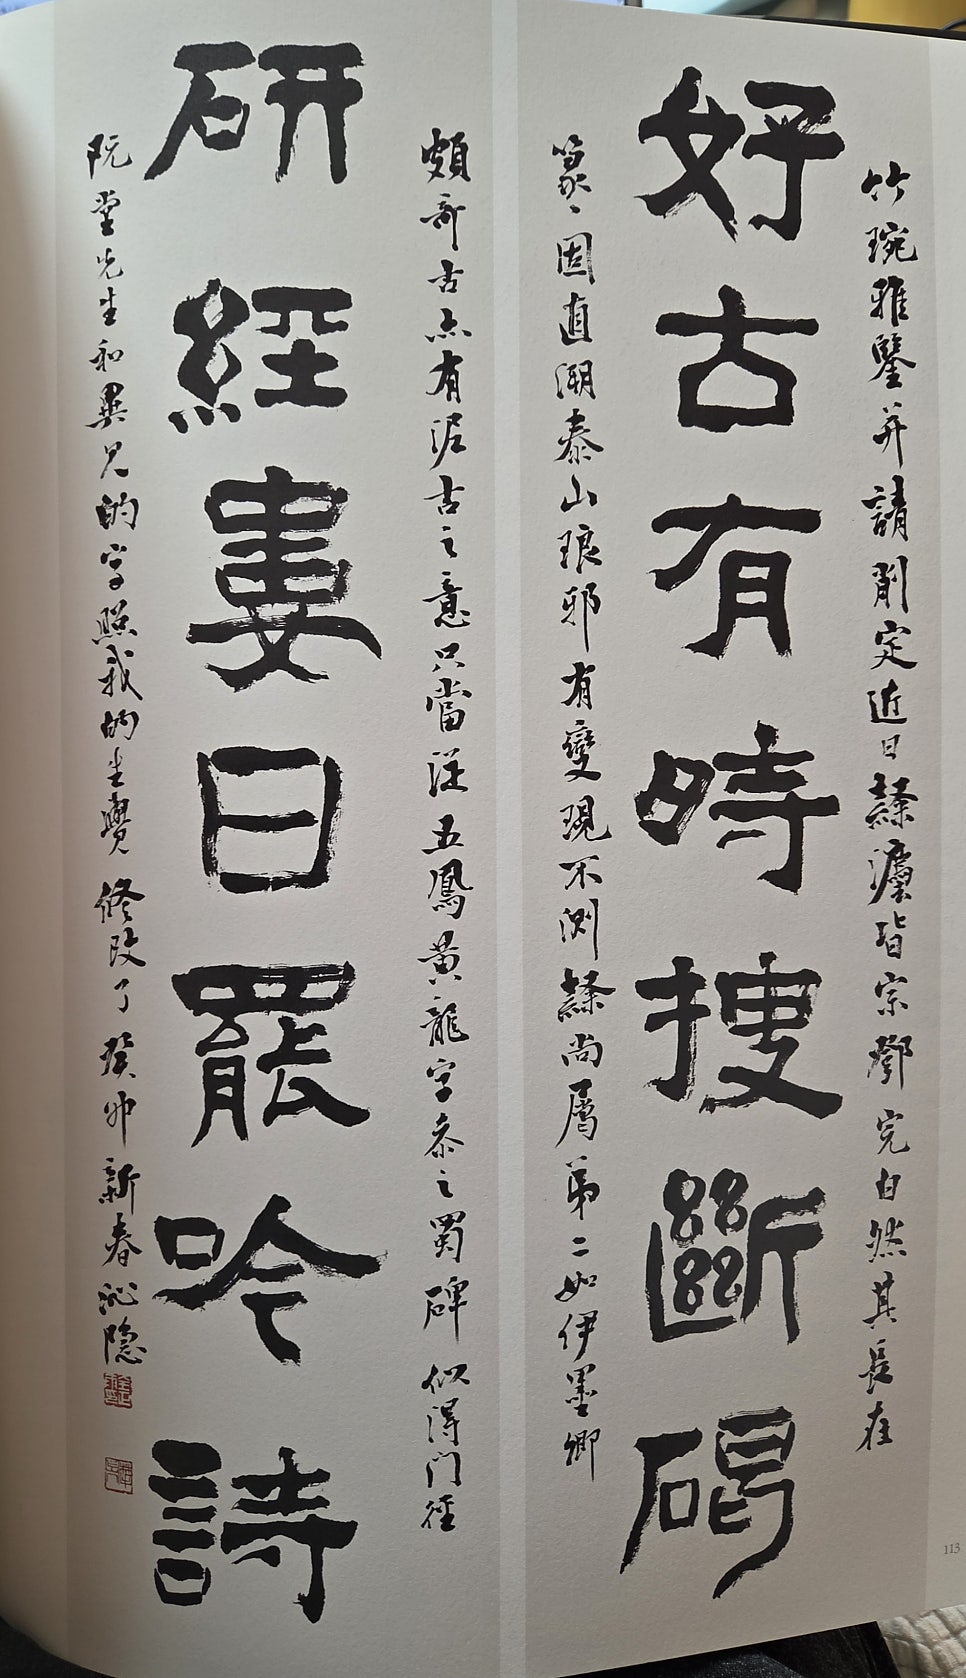 竹琬雅鑒并請削定近日隸瀘皆宗鄧完白然其長在
好古有時搜斷碣
篆篆固直溯泰山琅邪有變現不測隸尚屬第二如伊墨卿
頗奇古亦有泥古之意只當從五鳳黃龍字泰之蜀碑似得门徑
研經婁日罷吟詩
阮堂先生和異兄的字照我的生覺修改了癸卯新春沁隐
113